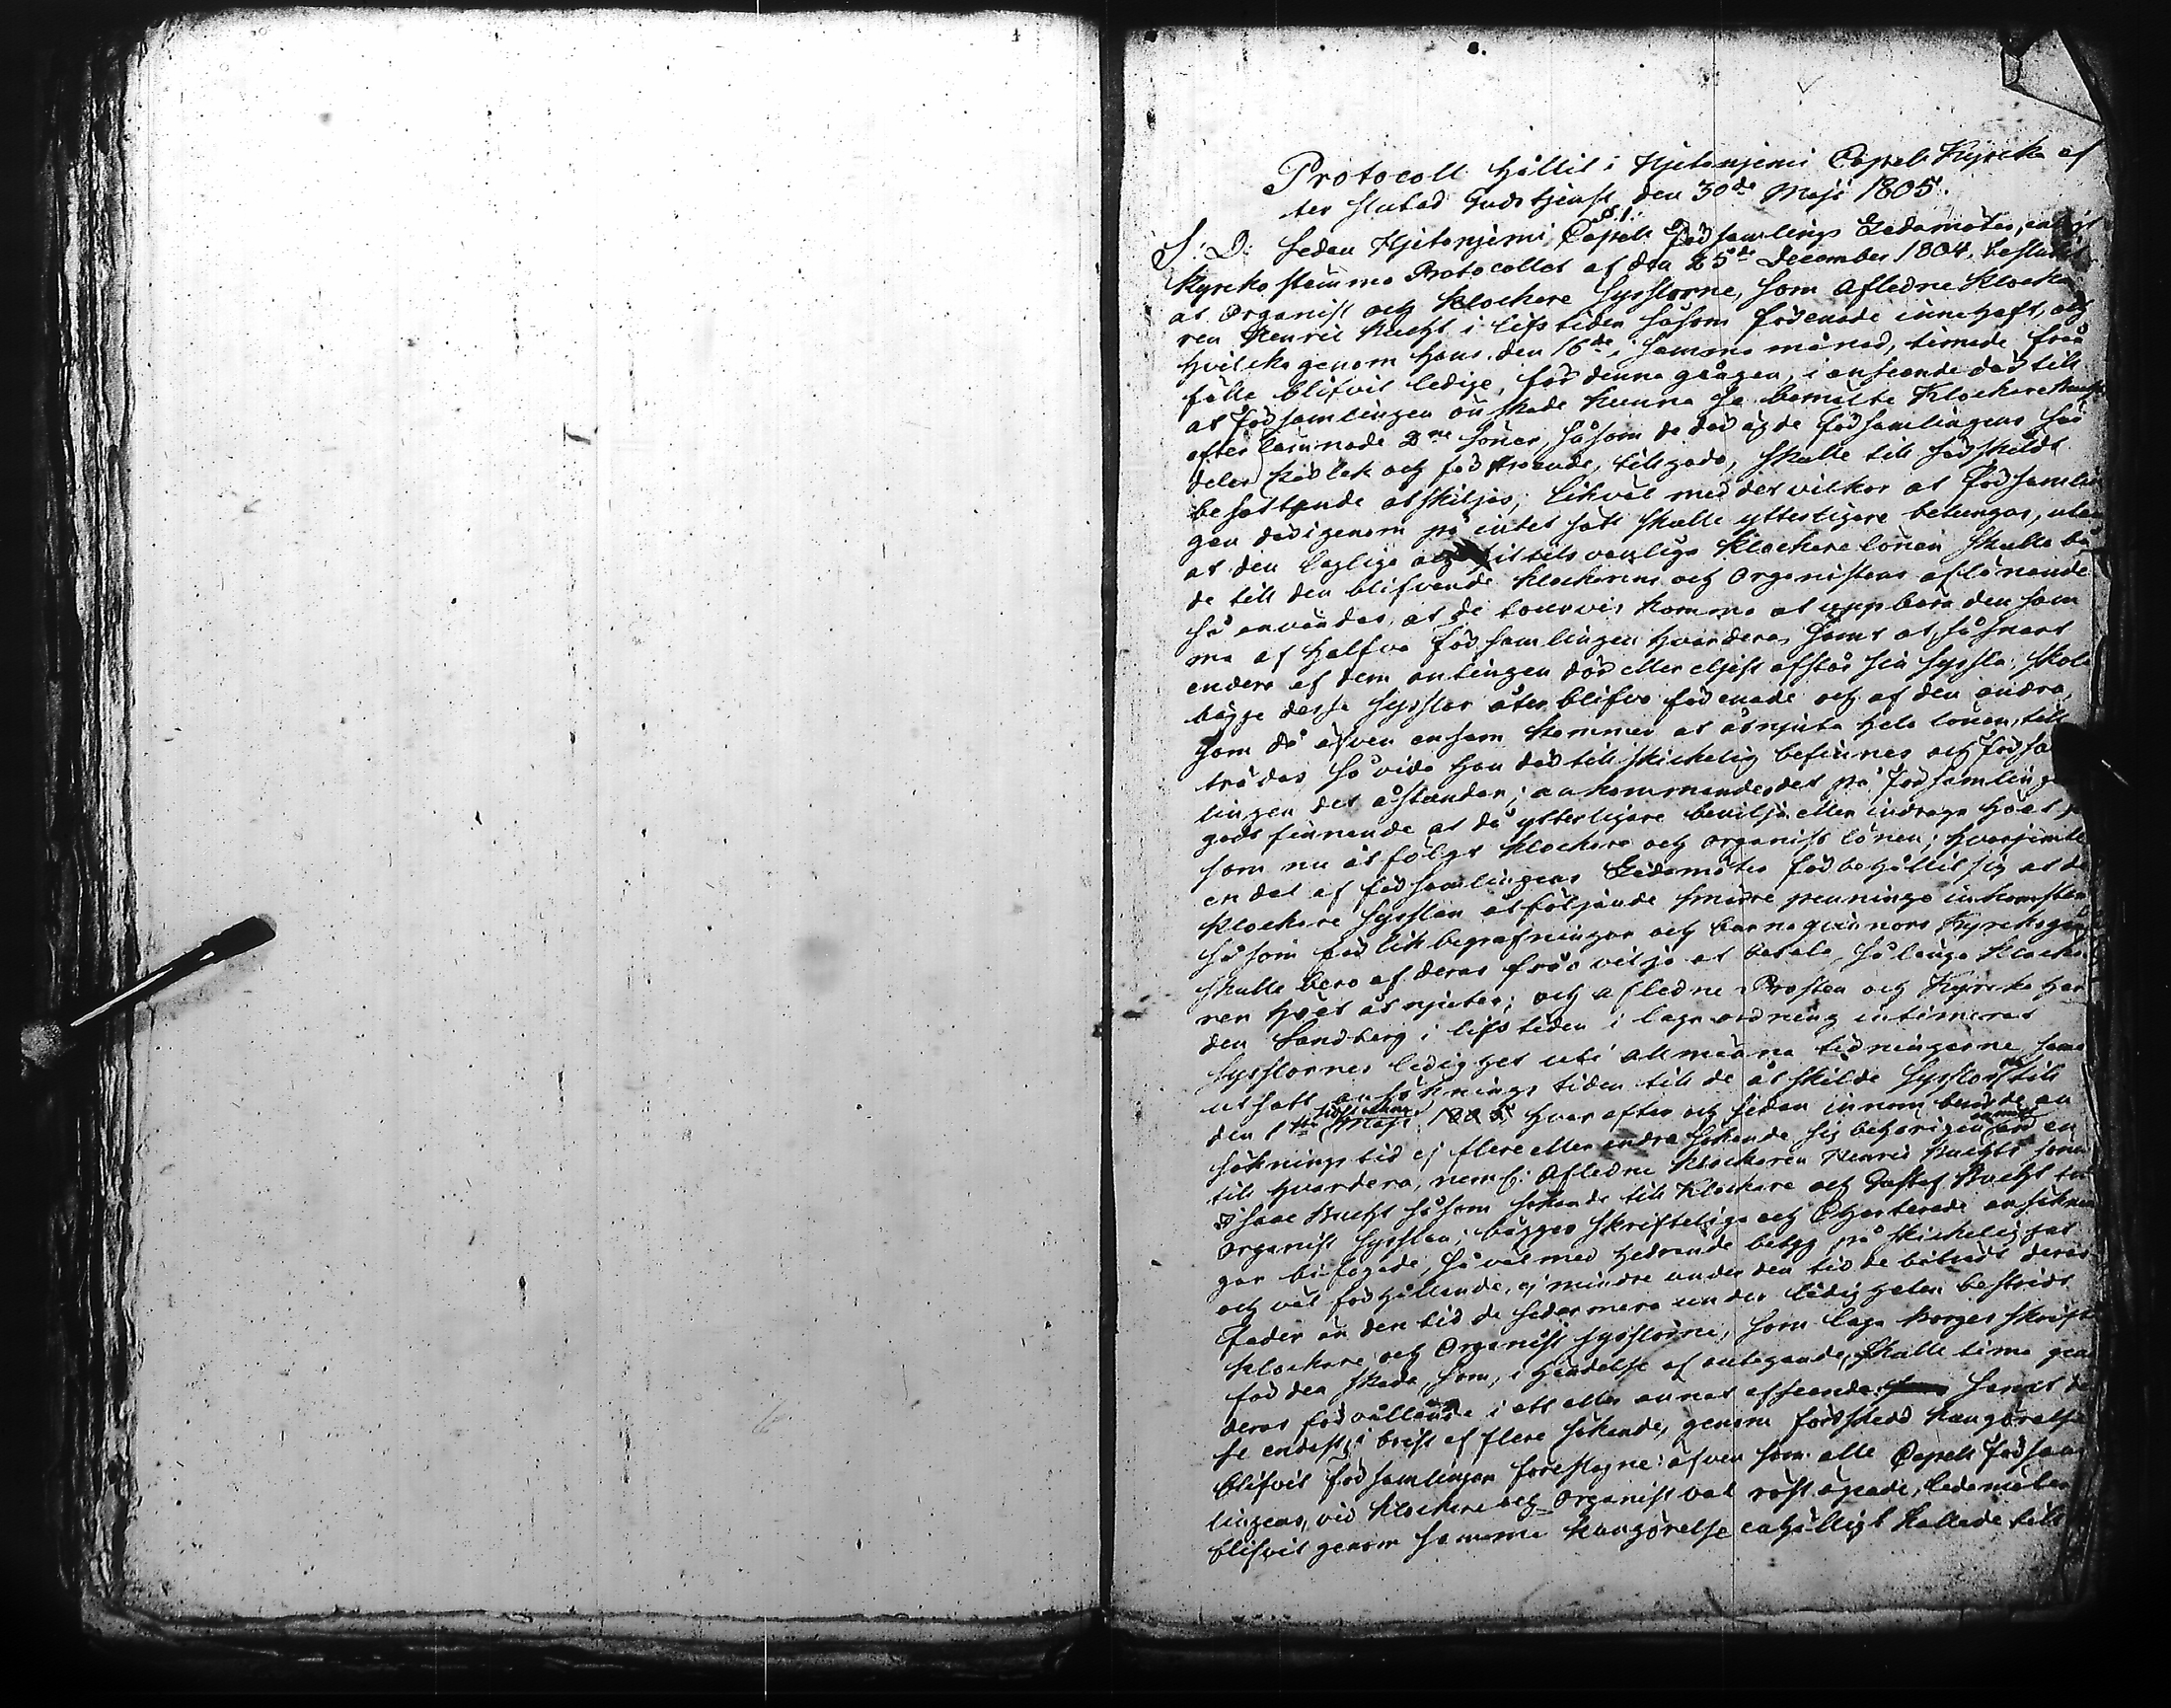 Protocoll hållit i Hjetanjemi Capell Kyrcka ef
ter slutad Gudstjenst den 30de Maji 1805.
§.1.
S: D: Sedan Hjetanjemi Capell Församlings Ledamöter, enligt
Kyrcko stämmo Protocollet af den 25de December 1804, beslutit
at Organist och Klockare Sysslorne, som Aflidne Klocka
ren Henric Bucht i lifstiden såsom förenade innehaft, och
hvilcka genom hans den 16de i samma månad, timade från
fälle blifvit ledige, för denna gången, i anseende dertill
at Församlingen önskade kunna se bemälte Klockare Buchts
efterlämnade 2ne Söner, såsom de der ägde Församlingens sär
deles kärlek och förtroende, tillgodo, skulle till särskildt
besättande åtskiljas; likväl med det vilkor at Församlin
gen derigenom på intet sätt skulle ytterligare betungas, utan
at den laglige och hittils vanliga Klockare lönen skulle bå
de till den blifvande Klockarens och Organistens aflönande
så användas, at de tourvis komma at uppbära den sam
ma af halfva Församlingen hvardera, samt at, så snart
endera af dem antingen dör eller eljest afstår sin syssla, skola
bägge dessa sysslor åter blifva förenade och af den andra,
som då äfven ensam kommer at åtnjuta hela lönen, till
trädas så vida han dertill skickelig befinnes och Församm
lingen det åstundar; ankommandes det på Församlinge
godtfinnande at då ytterligare bevilja eller indraga hvad
som nu åtföljt Klockare och Organist lönen; hvarjemte
en del af församlingens Ledamöter förbehållit sig at de
Klockare Sysslan åtföljande smärre penninge inkomster
såsom för lik begrafningar och barnaqvinnors Kyrckogång
skulle bero af deras fria vilja at betala, så länge Klocka
ren hvad åtnjuter; och aflidne Prosten och Kyrcko her
den Sandberg i lifstiden i laga ordning intimerat
Sysslornes ledighet uti allmänna tidningarne, samt
utsatt ansöknings tiden till de åtskilde Sysslorne till
den 1sta Maji 1805, hvarefter och sedan inom berörde an
söknings tid ej flere eller andra sökande sig behörigen anmält än en
till hvardera, neml: Aflidne Klockaren Henric Buchts söner
Isaac Bucht såsom sökande till Klockare och Gustaf Bucht till
Organist Sysslan; bägges skriftelige och Charterade ansöknin
gar bifogade, så väl med hedrande betyg på skickelighet
och väl förhållande, ej mindre under den tid de biträdt deras
Fader än den tid de sedermera under ledigheten bestridt
Klockare och Organist Sysslorne, som laga borges skrift
för den skada, som, i händelse af antagande, skulle tima genom
deras förvållande i ett eller annat afseende samt de
se endast, i brist af flere sökande, genom förr skedd kungörelse
blifvit församlingen föreslagne: äfven som alle Capell Försam
lingens, vid Klockare och Organist val röst ägande, ledamöter
blifvit genom samma kungörelse enhälligt kallade till